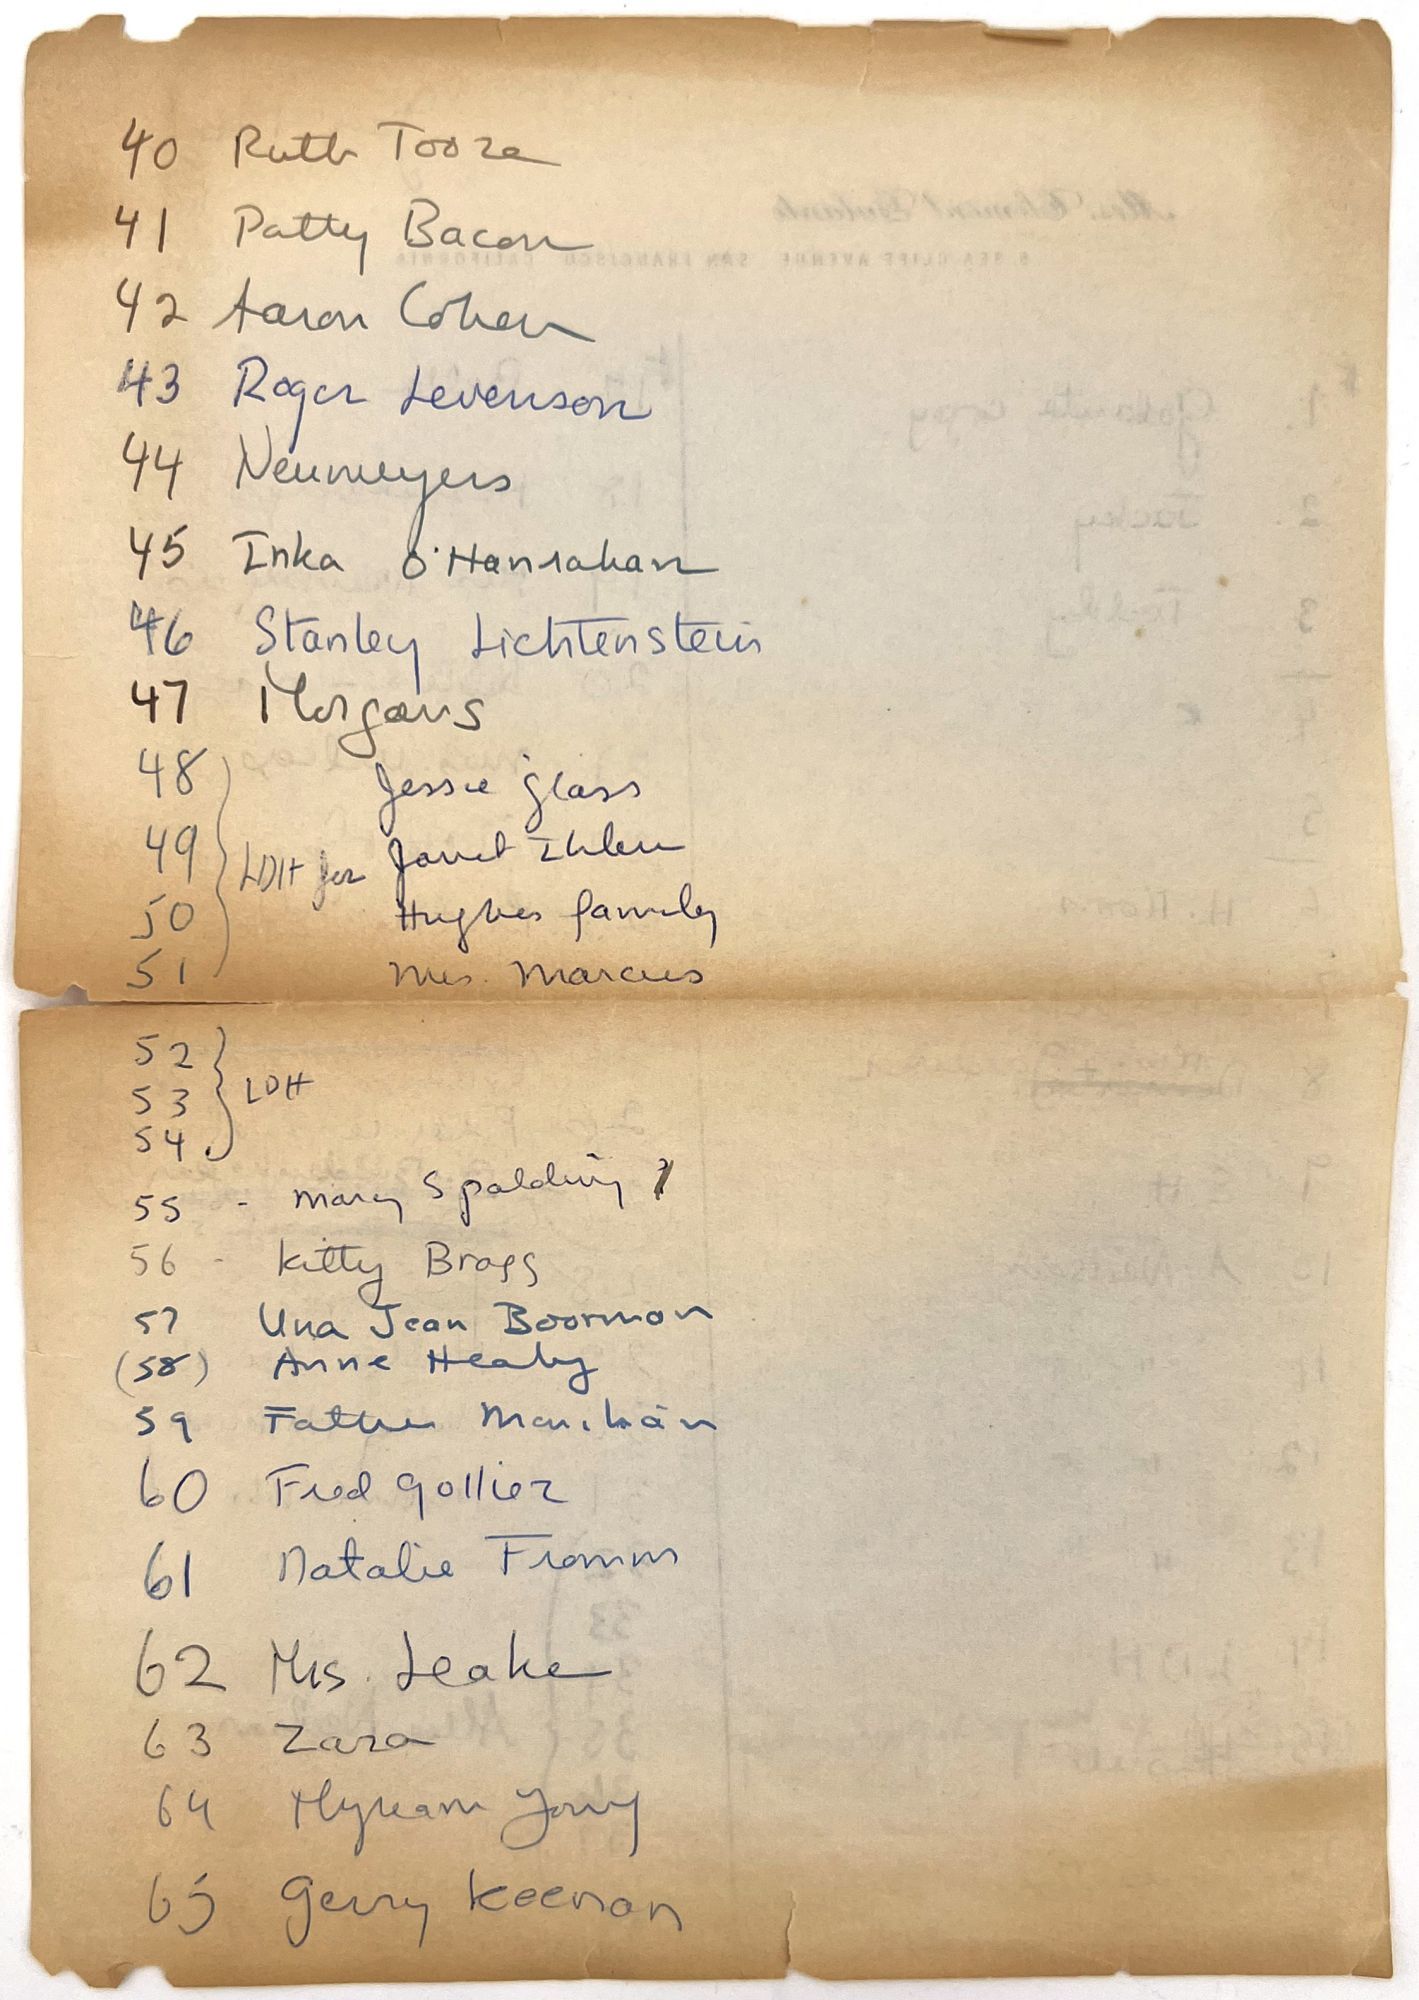 40 Ruth Tooze
41 Patty Bacon
42 Aaron Cohen
43 Roger Levenson
44 Neumeyers
45 Inka O'Hanrahan
46 Stanley Lichtenstein
47 Morgans
48 Jessie Glass
49 LDH for Janet
50 Hughes family
51 Mrs. Marcus
52
53 LDH
54
55 - Mary Spalding
56 - Kitty Bragg
57 Una Jean Boorman
(58) Anne Healy
59 Father
60 Fred Gollier
61 Natalie Fromm
62 Mrs. Leake
63 Zara
64 Young
65 Gerry Keenan